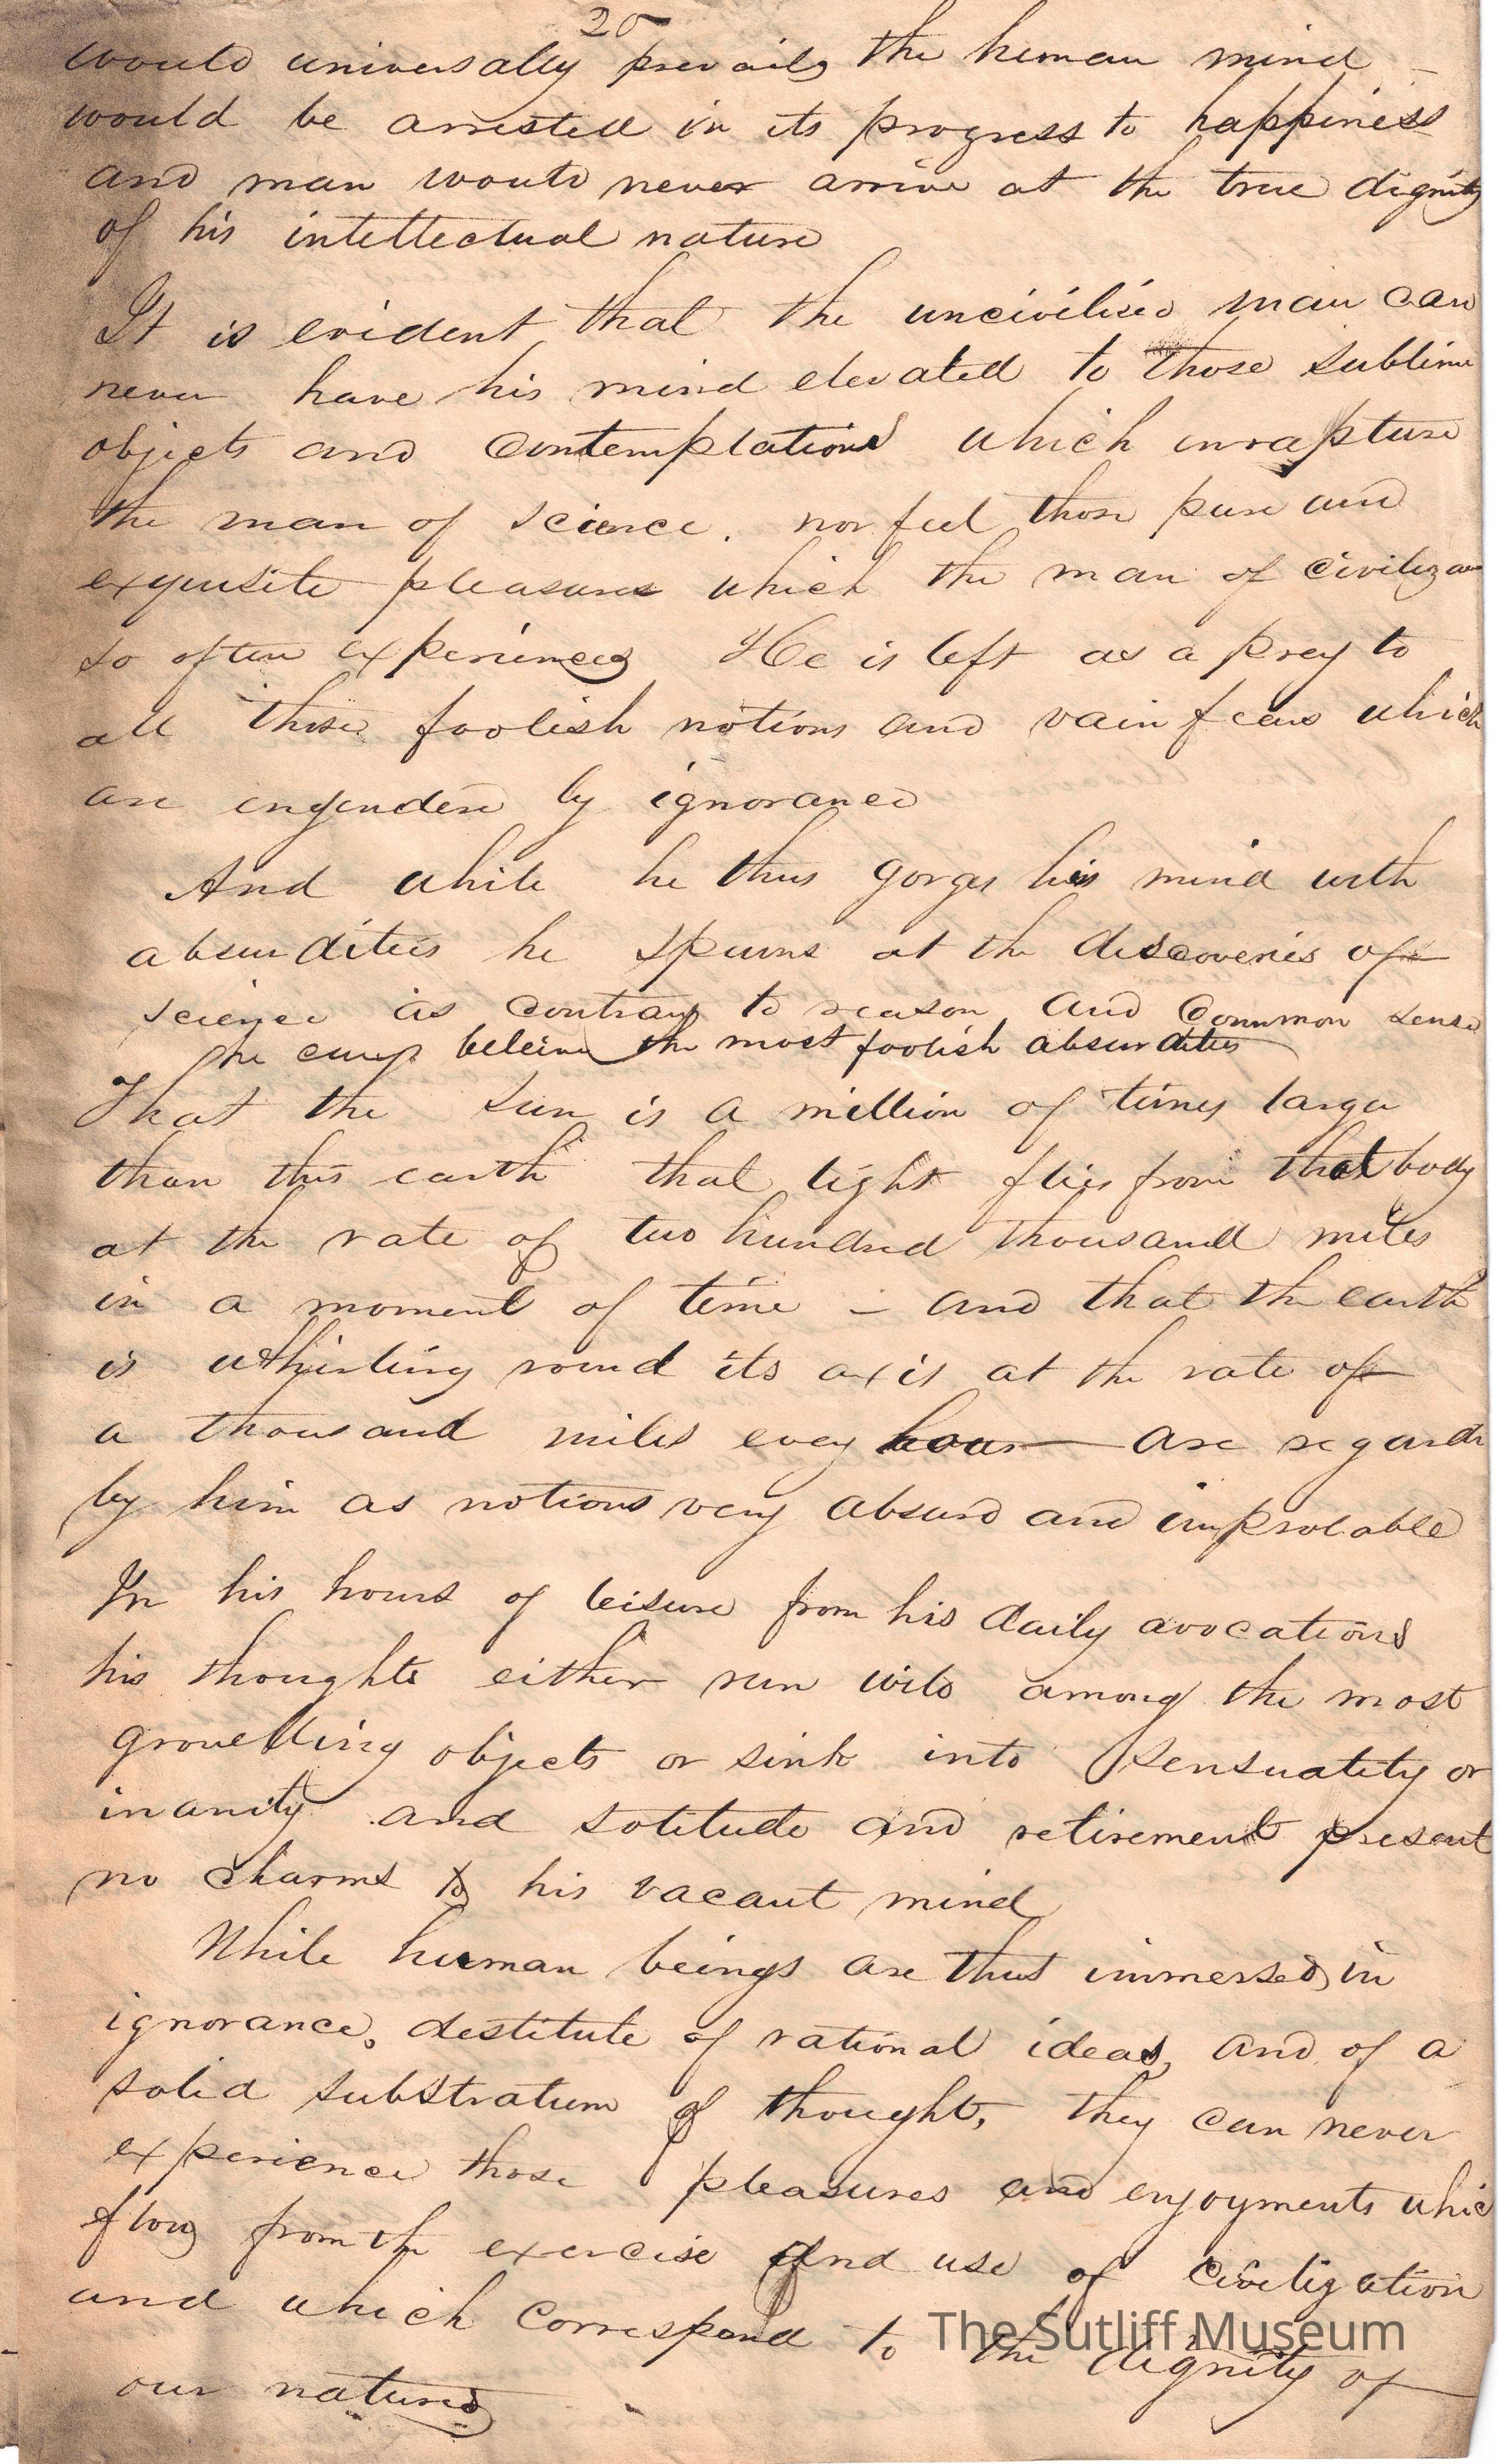 20
would universally prevail, the human mind
would be arrested in its progress to happiness
and man would never arrive at the true dignity
of his intellectual nature
It is evident that the uncivilised man can
never have his mind elevated to those sublime
objects and contemplations which enrapture
the man of science. nor feel those pure and
exquisite pleasures which the man of
so often experiences He is left as a prey to
all those foolish notions and vain fears which
are engendere by ignorance
And while he thus gorges his mind with
absurdities he spurns at the discoveries of
science as contrary to reason and Common sense
he beleive the most foolish absurdities
That the sun is a million of times larger
than this earth that light flies from that body
at the rate of two hundred thousand miles
in a moment of time – and that the earth
is whirling round its axis at the rate of
a thousand miles every hour — are regarde
by him as notions very absurd and improbable
In his hours of leisure from his daily avocations
his thoughts either run wild among the most
grovelling objects or sink into sensuality or
inanity and solitude and retirement present
no charms to his vacant mind
While human beings are thus immersed, in
ignorance, destitute of rational ideas, and of a
solid substratum of thought, they can never
experience those pleasures and enjoyments whic
flow from the exercise and use of civilization
and which correspond to the dignity of
our natures
The Sutliff Museum